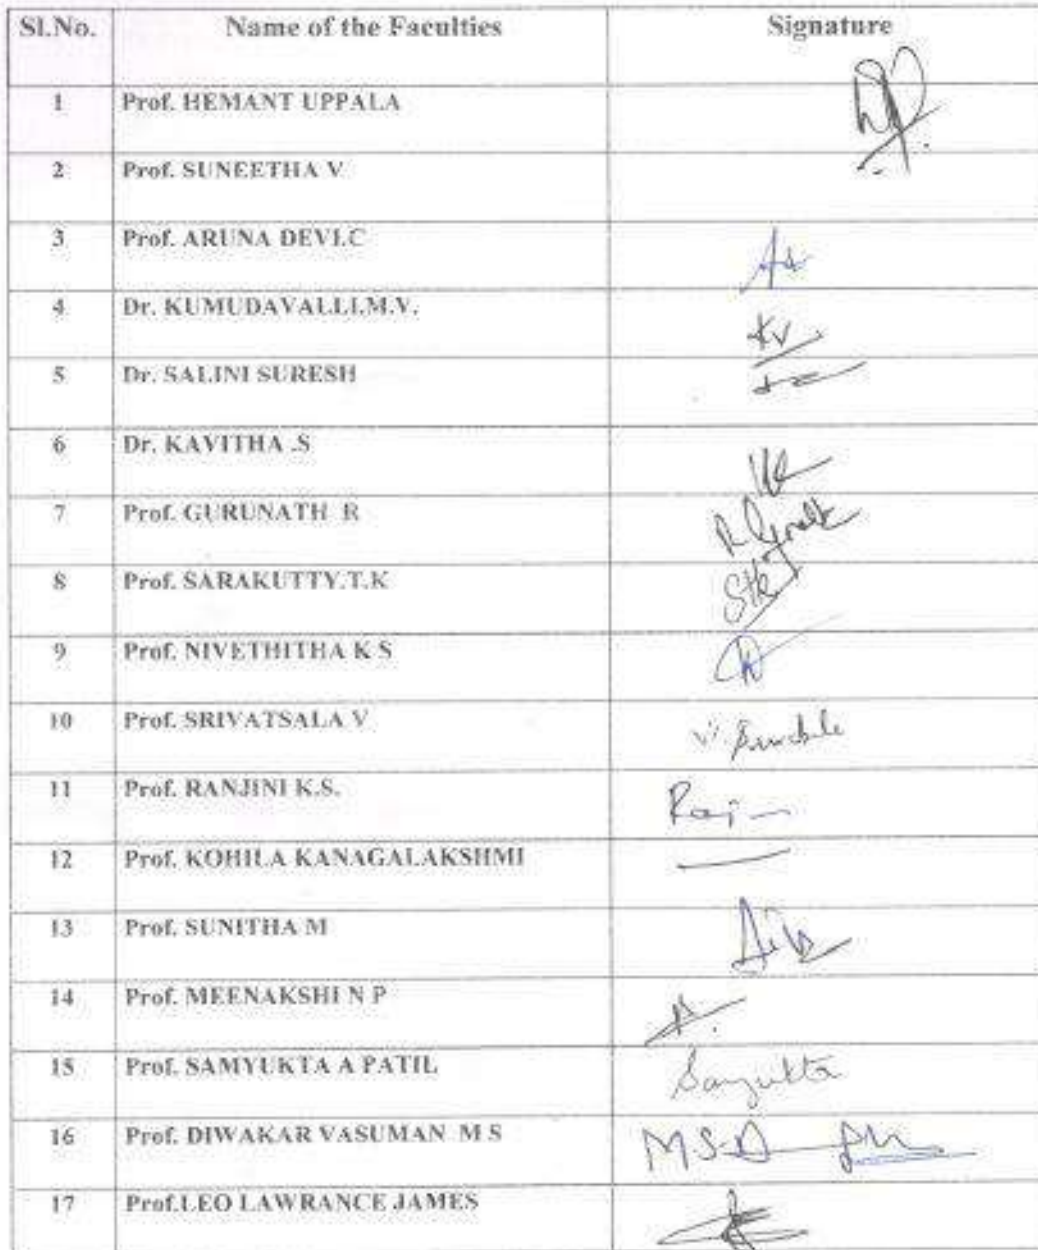 Sl.No. Name of the Faculties Signature
1 Prof. HEMANT UPPALA
2 Prof. SUNEETHA V
3 Prof. ARUNA DEVI.C
4 Dr. KUMUDAVALLI.M.V.
5 Dr. SALINI SURESH
6 Dr. KAVITHA .S
7 Prof. GURUNATH R
8 Prof. SARAKUTTY.T.K
9 Prof. NIVETHITHA K S
10 Prof. SRIVATSALA V
11 Prof. RANJINI K.S.
12 Prof. KOHILA KANAGALAKSHMI
13 Prof. SUNITHA M
14 Prof. MEENAKSHI N P
15 Prof. SAMYUKTA A PATIL Samyukta
16 Prof. DIWAKAR VASUMAN M S
17 Prof.LEO LAWRANCE JAMES